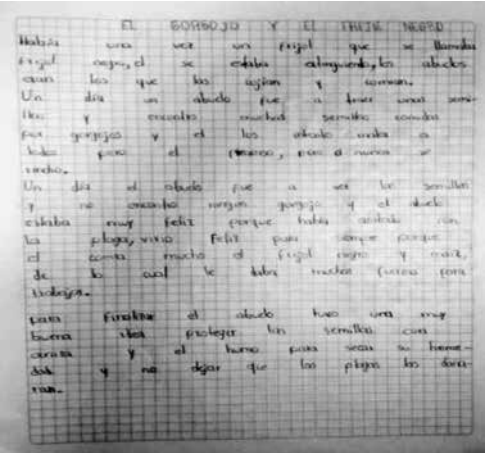 EL GORGOJO Y EL FRIJOL NEGRO
Había una vez un frijol que se llamaba
frijol negro, el se estaba extinguiendo, los abuelos
eran los que los cogían y comian.
Un día un abuelo fue a traer unas semi-
llas y encontro muchas semillas comidas
por gorgojos y el los
todos pero el , pero el nunca se
rindio.
Un día el abuelo fue a ver las semillas
y no encontro ningun gorgojo y el abuelo
estaba muy feliz porque habia acabado con
la plaga, vivio feliz para siempre porque
el comia mucho el frijol negro y maiz,
de lo cual le daba mucha fuerza para
trabajar.
para finalizar el abuelo tuvo una muy
buena idea proteger las semillas con
ceniza y el humo para secar su hume-
dad y no dejar que las plagas las daña-
ran.